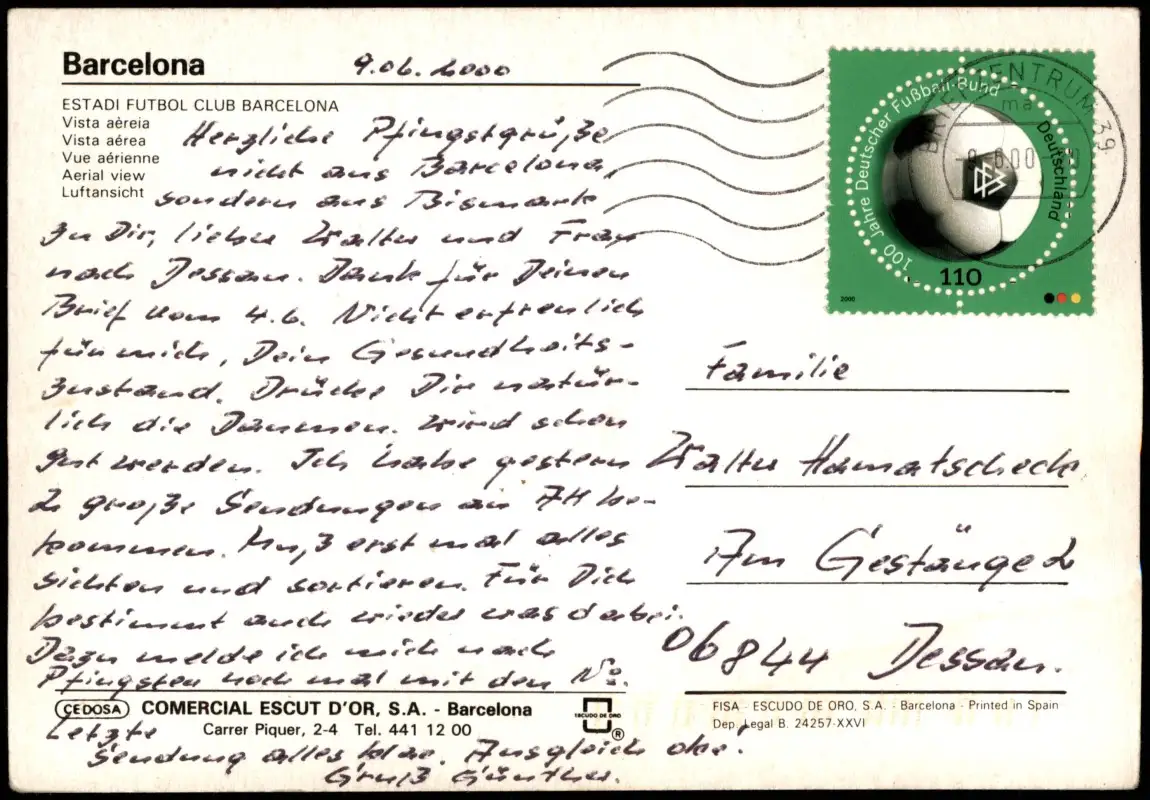 Barcelona
9.06.2000
ESTADI FUTBOL CLUB BARCELONA
Vista aèreia
Vista aérea
Vue aérienne
Aerial view
Luftansicht
Herzliche Pfingstgrüße
nicht aus Barcelona,
sondern aus Bismark
zu Dir, lieber Walter und Frau
nach Dessau. Dank für Deinen
Brief vom 4.6. Nicht erfreulich
für mich, Dein Gesundheits-
zustand. Drücke Dir natür-
lich die Daumen. Wird schon
gut werden. Ich habe gestern
2 große Sendungen an AH be-
kommen. Muß erst mal alles
sichten und sortieren. Für Dich
bestimmt auch wieder was dabei.
Dazu melde ich mich nach
Pfingsten noch mal mit den No.
Letzte
Sendung alles klar. Ausgleich oke!
Gruß Günther.
CEDOSA
COMERCIAL ESCUT D'OR, S.A. - Barcelona
Carrer Piquer, 2-4 Tel. 441 12 00
ESCUDO DE ORO
®
FISA - ESCUDO DE ORO, S.A. - Barcelona - Printed in Spain
Dep. Legal B. 24257-XXVI
100 Jahre Deutscher Fußball-Bund
Deutschland
DFB
110
2000
BRIEFZENTRUM 39
ma
Familie
Walter Hamatscheck
Am Gestänge 2
06844 Dessau.